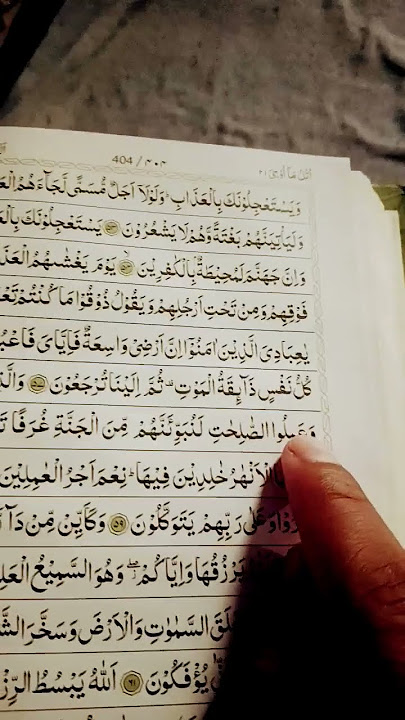 404 / ۴۰۴
اتل ما اوحی ۲۱
وَيَسْتَعْجِلُوْنَكَ بِالْعَذَابِ ؕ وَلَوْلَاۤ اَجَلٌ مُّسَمًّى لَّجَآءَهُمُ
وَلَيَاْتِيَنَّهُمْ بَغْتَةً وَّهُمْ لَا يَشْعُرُوْنَ ۝۵۳ يَسْتَعْجِلُوْنَكَ
وَاِنَّ جَهَنَّمَ لَمُحِيْطَةٌۢ بِالْكٰفِرِيْنَ ۝۵۴ يَوْمَ يَغْشٰىهُمُ
فَوْقِهِمْ وَمِنْ تَحْتِ اَرْجُلِهِمْ وَيَقُوْلُ ذُوْقُوْا مَا كُنْتُمْ
يٰعِبَادِيَ الَّذِيْنَ اٰمَنُوْۤا اِنَّ اَرْضِيْ وَاسِعَةٌ فَاِيَّايَ
كُلُّ نَفْسٍ ذَآئِقَةُ الْمَوْتِ ۫ ثُمَّ اِلَيْنَا تُرْجَعُوْنَ ۝۵۷
وَعَمِلُوا الصّٰلِحٰتِ لَنُبَوِّئَنَّهُمْ مِّنَ الْجَنَّةِ غُرَفًا
الْاَنْهٰرُ خٰلِدِيْنَ فِيْهَا ؕ نِعْمَ اَجْرُ الْعٰمِلِيْنَ
وَعَلٰى رَبِّهِمْ يَتَوَكَّلُوْنَ ۝۵۹ وَكَاَيِّنْ مِّنْ
يَرْزُقُهَا وَاِيَّاكُمْ ۖ وَهُوَ السَّمِيْعُ
السَّمٰوٰتِ وَالْاَرْضَ وَسَخَّرَ
يُؤْفَكُوْنَ ۝۶۱ اَللّٰهُ يَبْسُطُ